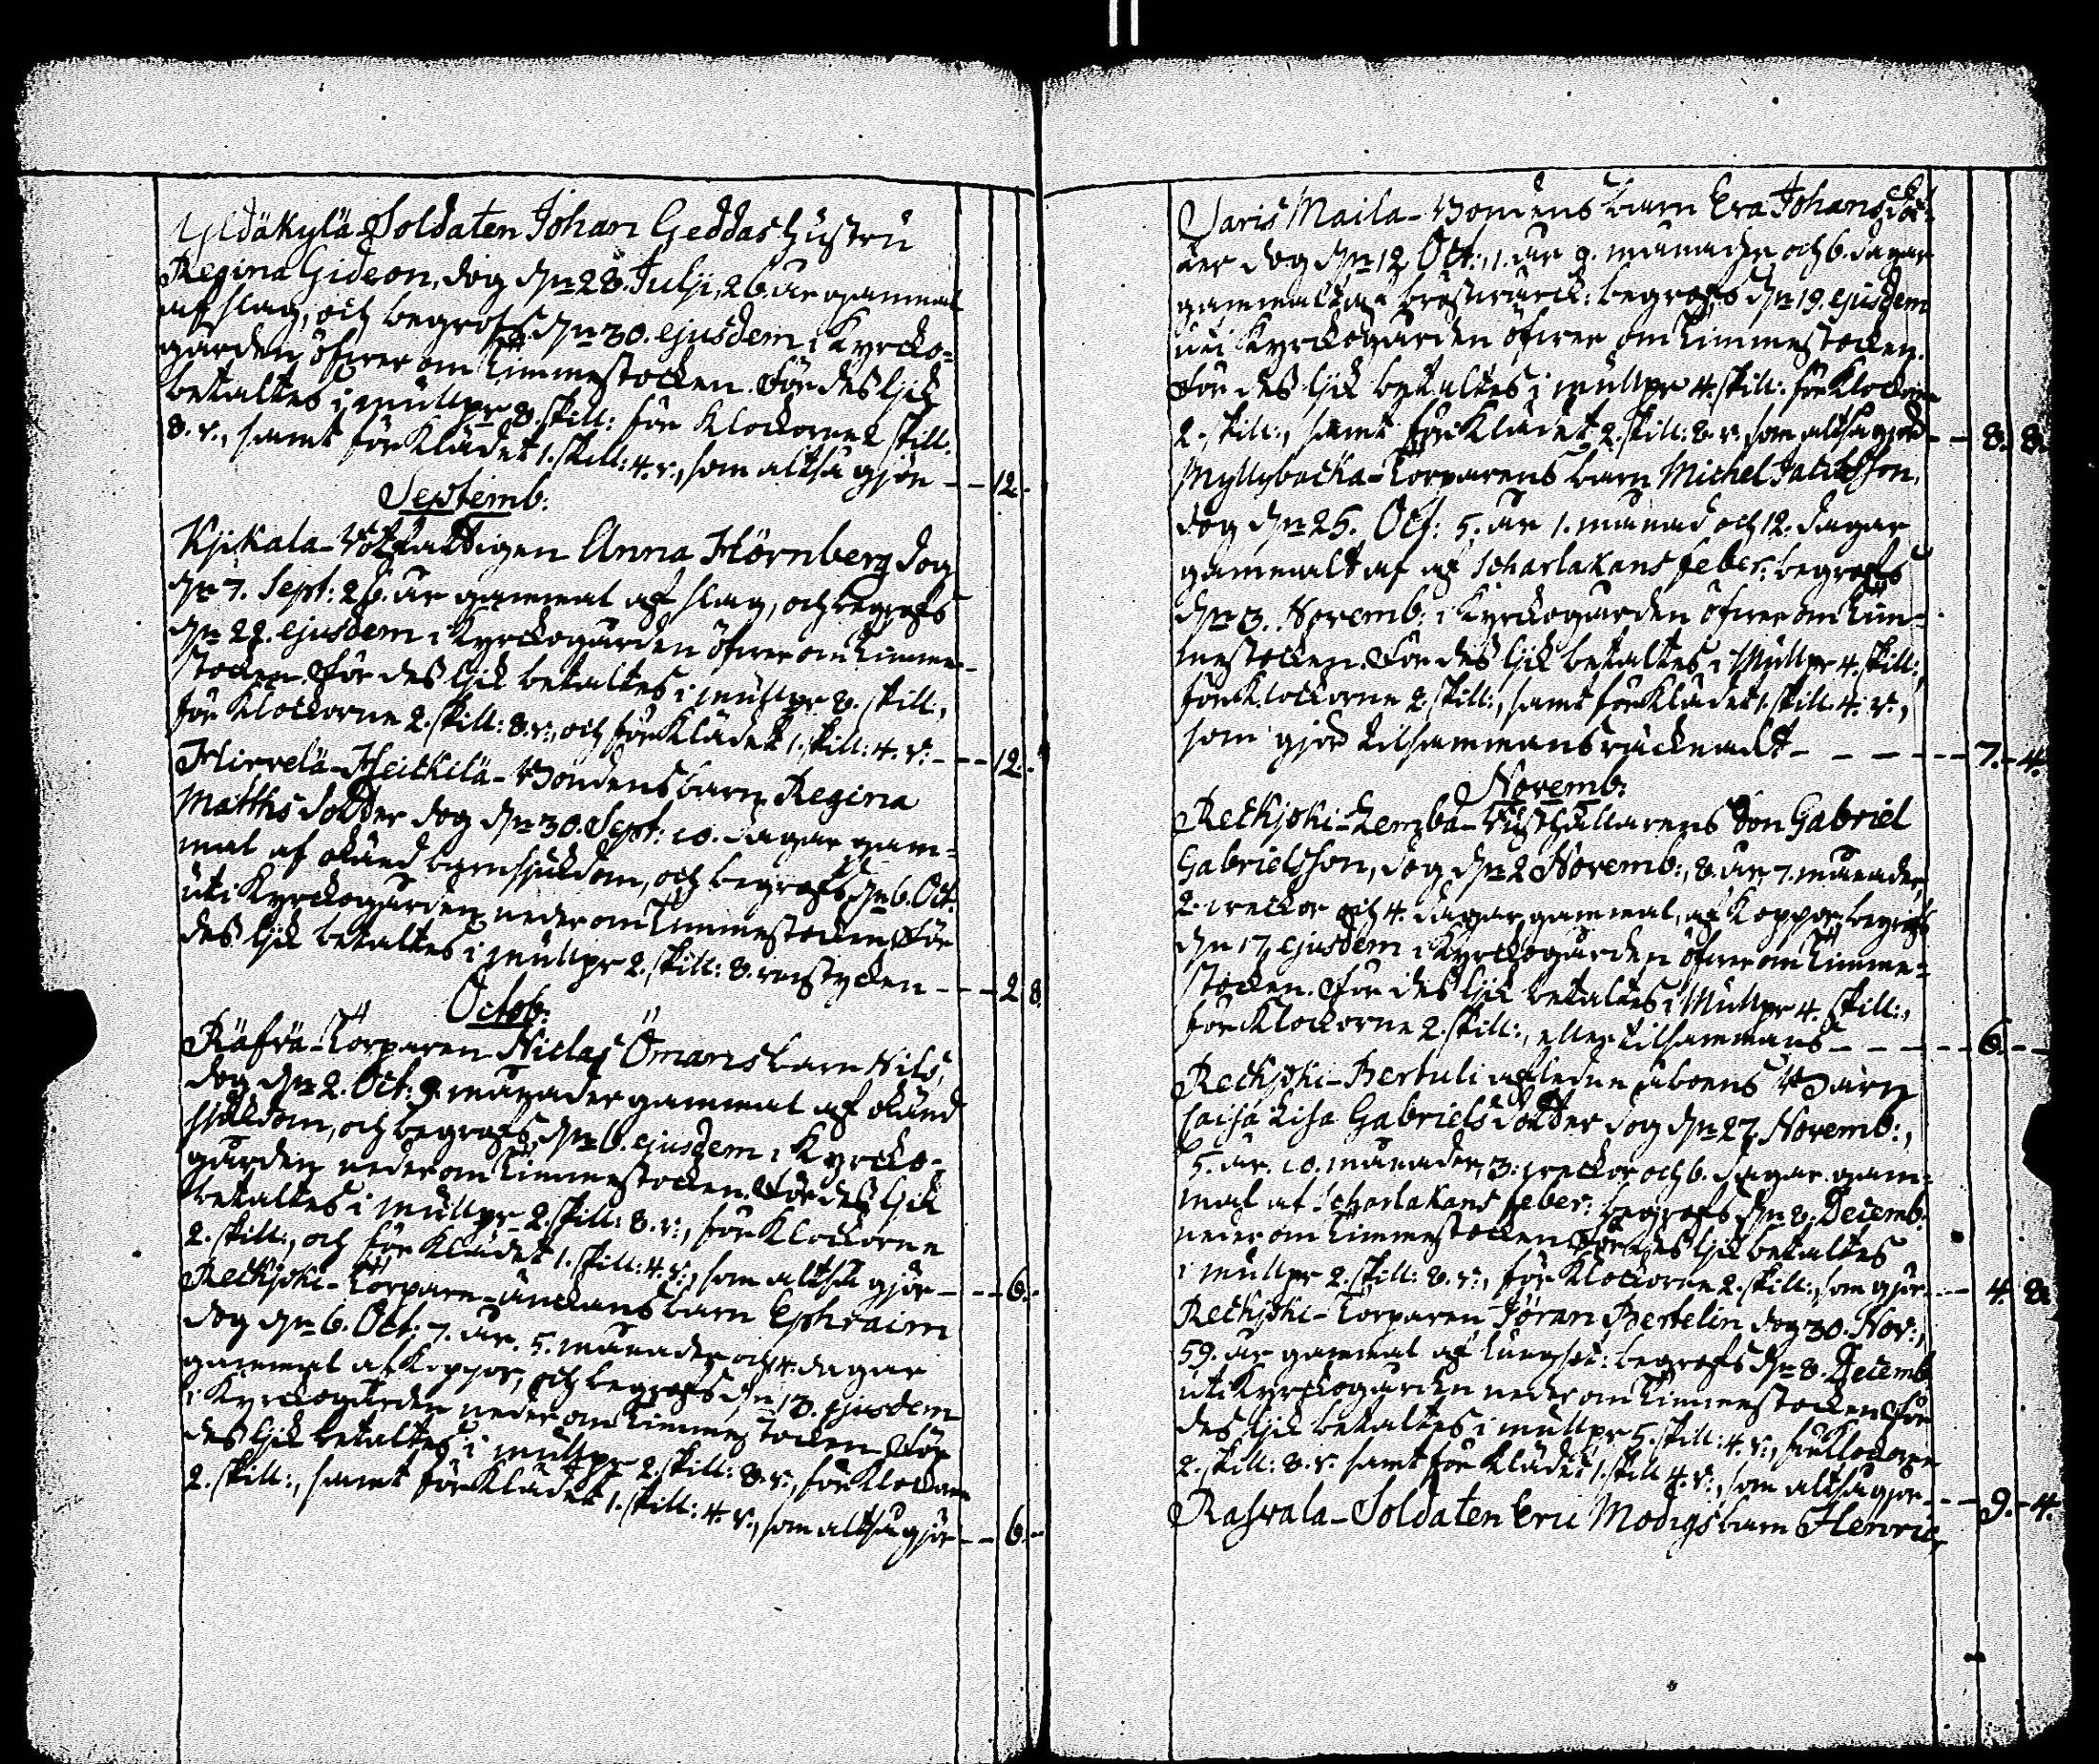 Yldäkylä-Soldaten Johan Geddas hustru
Regina Gideon, dog d:n 28. Julji, 26. år gammal
af slag, och begrofs d:n 30. ejusdem i Kyrcko-
gården öfver om Timmestocken. För des lik
betaltes i mullpr 8. skill: för Klockorne 2 skill.
8. r., samt för Klädet 1. skill: 4. r., som altså gjör - - 12. -
Septemb:
Kjikala- Anna Hörnberg dog
d:n 7. Sept: 26. år gammal af slag, och begrofs
d:n 22. ejusdem i Kyrckogården öfver om Timme-
stocken. För des lik betaltes i mullpr 8. skill.,
för Klockorne 2. skill: 8. r., och för Klädet 1. skill: 4. r: - - 12. -
Hirvelä-Heickilä-Bondens barn Regina
Matths dotter dog d:n 30. Sept: 10. dagar gam-
mal af okänd barnsjukdom, och begrofs d:n 6. Oct.
uti Kyrckogården neder om Timmestocken. För
des lik betaltes i mullpr 2. skill: 8. runstycken - - - 2 8.
Octob:
Räfvä-Torparen Niclas Ömans barn Nils,
dog d:n 2. Oct: 9. månader gammal af okänd
sjukdom, och begrofs d:n 6. ejusdem i Kyrcko-
gården neder om Timmestocken. För des lik
betaltes i mullpr 2. skill: 8. r:, för Klockorne
2. skill:, och för Klädet 1. skill: 4. r:, som altså gjör - - 6. -
Retkjoki-Torpare-änckans barn Ephraim
dog d:n 6. Oct: 7. år. 5. månader och 4. dagar
gammal af Koppor, och begrofs d:n 13. ejusdem
i Kyrckogården neder om Timmestocken För
des lik betaltes i mullpr 2. skill: 8. r., för Klockorne
2. skill:, samt för Klädet 1. skill: 4. r., som altså gjör - - 6. -
Saris Maila-Bondens barn Eva Johans dot-
ter dog d:n 12 Oct:, 1. år 9. månader och 6. dagar
gammalt af bröstvärck: begrofs d:n 19. ejusdem
uti Kyrckogården öfver om Timmestocken.
För des lik betaltes i mullpr 4. skill: för Klockorne
2. skill:, samt för Klädet 2. skill: 8. r. som altså gjör - - 8. 8.
Myllybacka-Torparens barn Michel Jacobsson,
dog d:n 25. Oct: 5. år 1. månad och 12. dagar
gammalt af Scharlakans feber: begrofs
d:n 3. Novemb: i Kyrckogården öfver om Tim-
mestocken. För des lik betaltes i Mullpr 4. skill:,
för Klockorne 2. skill:, samt för Klädet 1. skill. 4. r.,
som gjör tilsammans räcknadt - - - - - 7. - 4.
Novemb:
Retkjoki-Lemba-Rusthållarens Son Gabriel
Gabrielsson, dog d:n 2 Novemb:, 8. år 7. månader,
2. veckor och 4. dagar gammal, af Koppor: begrofs
d:n 17. ejusdem i Kyrckogården öfver om Timme-
stocken. För des lik betaltes i Mullpr 4. skill:,
för Klockorne 2. skill:, eller tilsammans - - - - - 6. - -
Retkjoki-Bertuli afledne åboens Barn
Caisa Lisa Gabriels dotter dog d:n 27. Novemb:,
5. år. 10. månader, 3. veckor och 6. dagar gam-
mal af Scharlakans feber: begrofs d:n 8. Decemb.
neder om Timmestocken För des lik betaltes
i mullpr 2. skill: 8. r:, för Klockorne 2. skill:, som gjör - - 4. 8.
Retkjoki-Torparen Jöran Bertelin dog 30. Nov:,
59. år gammal af lungsot: begrofs d:n 8. Decemb.
uti Kyrckogården neder om Timmestocken För
des lik betaltes i mullpr 5. skill: 4. r., för Klockorne
2. skill: 8. r. samt för Klädet 1. skill 4. r., som altså gjör - - - 9. - 4.
Rasvala-Soldaten Eric Modigs barn Henric